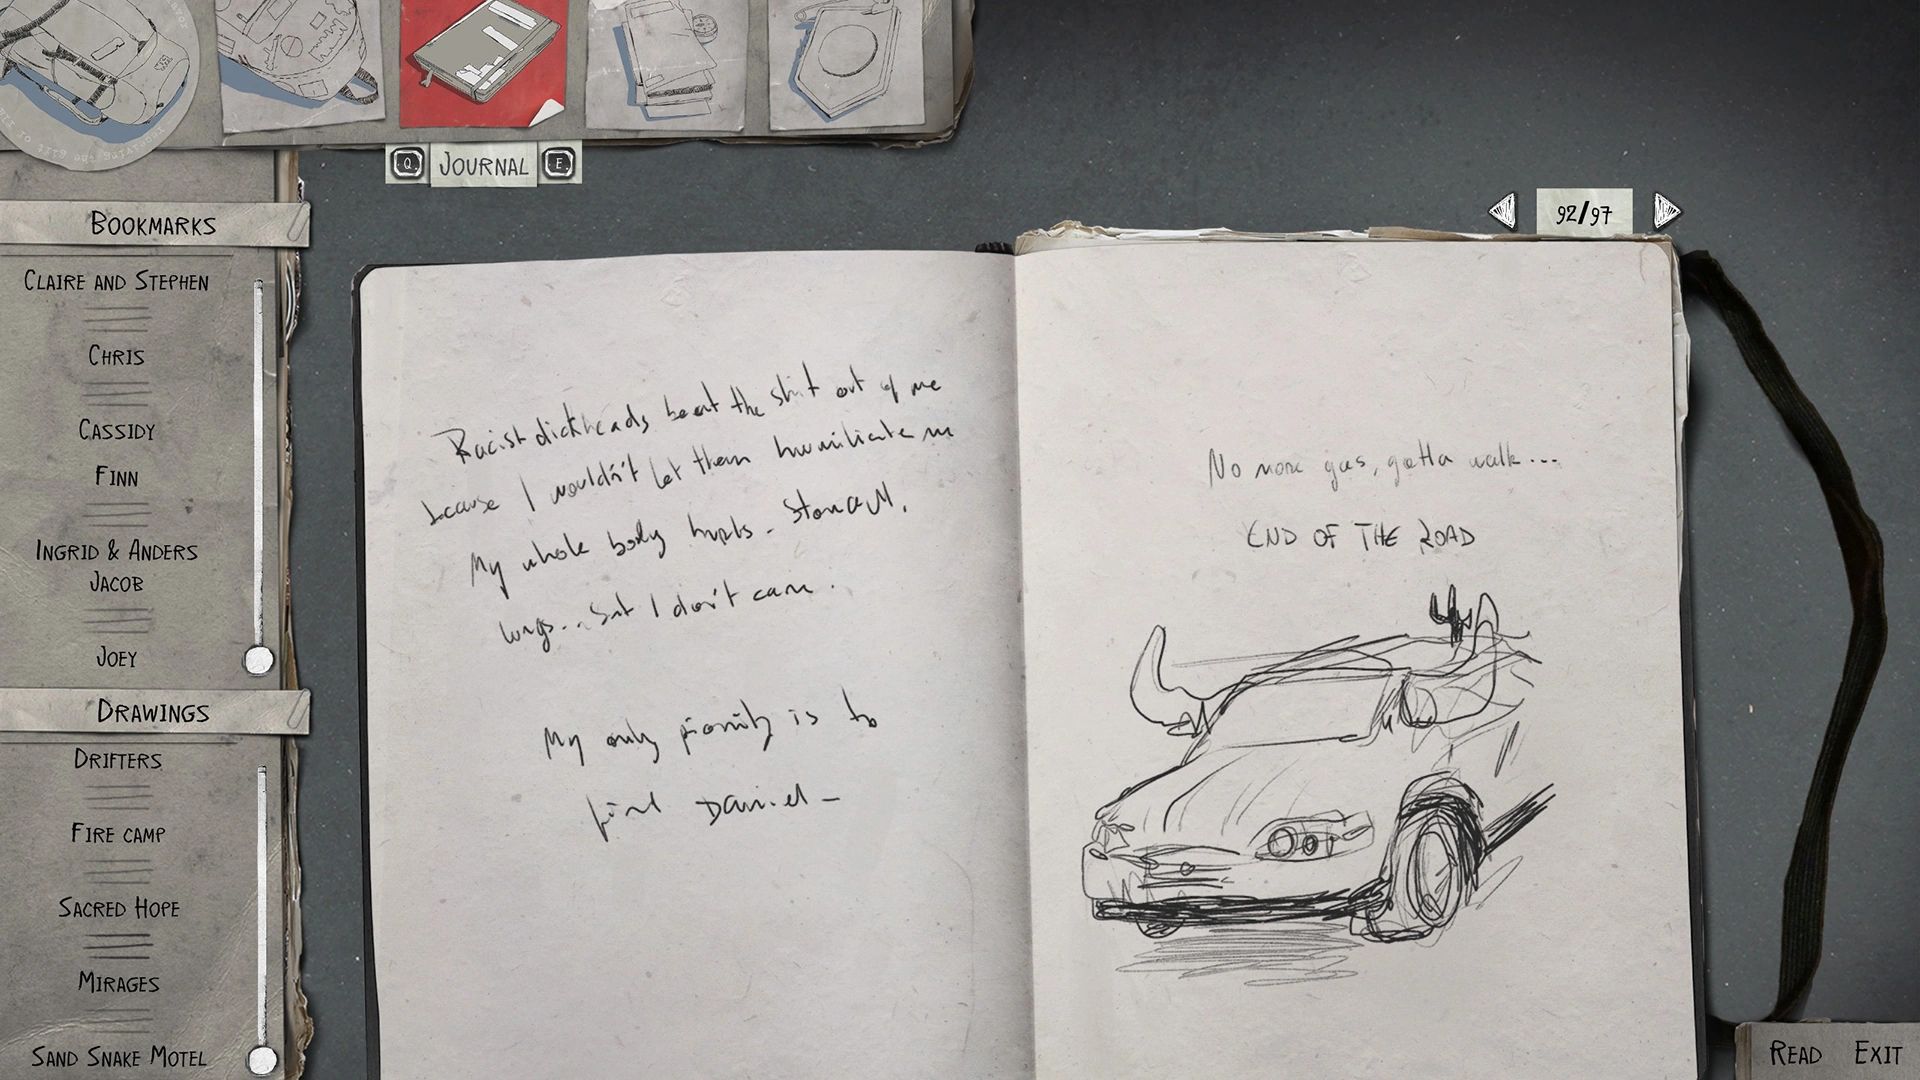 Q JOURNAL E
BOOKMARKS
CLAIRE AND STEPHEN
CHRIS
CASSIDY
FINN
INGRID & ANDERS
JACOB
JOEY
DRAWINGS
DRIFTERS
FIRE CAMP
SACRED HOPE
MIRAGES
SAND SNAKE MOTEL
92/97
Racist dickheads beat the shit out of me
because I wouldn't let them humiliate me
My whole body hurts - stomach,
lungs... But I don't care.
My only priority is to
find Daniel -
No more gas, gotta walk...
END OF THE ROAD
READ EXIT